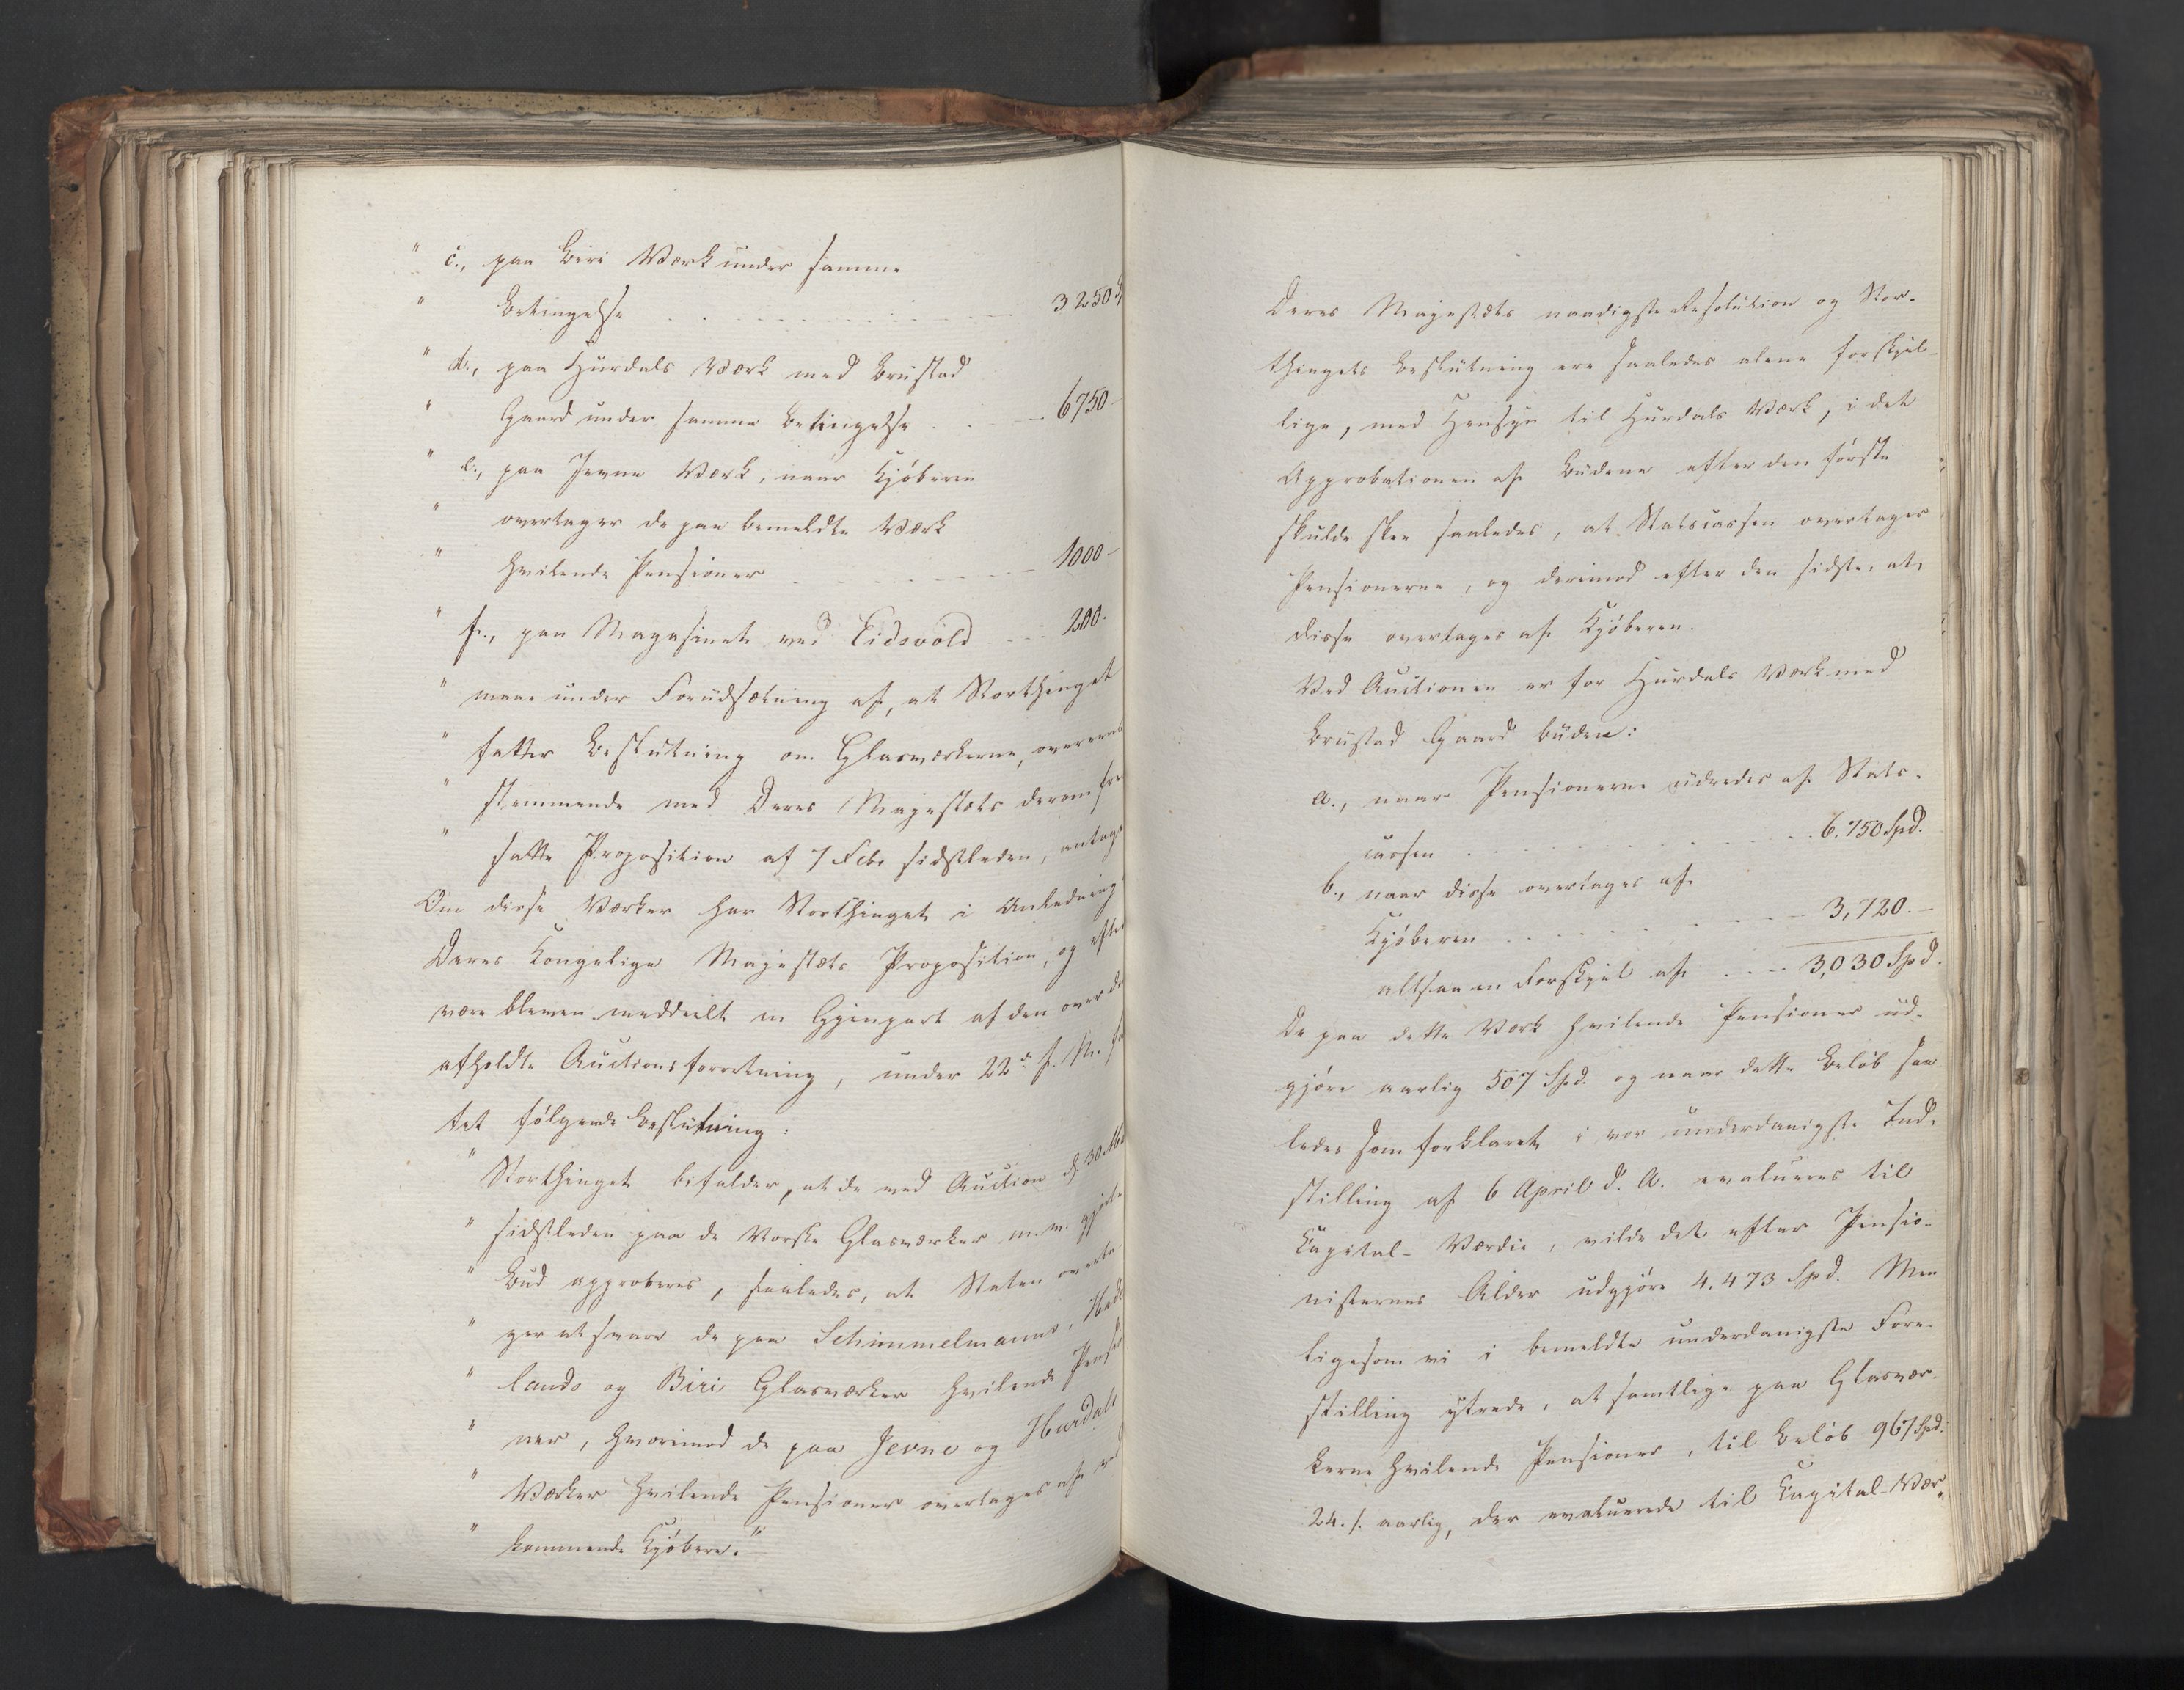 " c., paa Biri Værk under samme
" Betingelse . . . . . . . . 3250
" d., paa Hurdals Værk med Brustad
" Gaard under samme Betingelse . . . 6750 -
" e., paa Jevne Værk, naar Kjöberen
" overtager de paa bemeldte Værk
" hvilende Pensioner . . . . . . 1000 -
" f., paa Magasinet ved Eidsvold . . . 200.
" maae under Forudsætning af, at Storthinget
" fatter Beslutning om Glasværkerne, overeens
" stemmende med Deres Majestæts derom frem
" satte Proposition af 7 Febr sidstleden, antages
Om disse Værker har Storthinget i Anledning
Deres Kongelige Majestæts Proposition, og efter
være bleven meddeelt en Gjenpart af den over de
afholdte Auctionsforretning, under 22de f. M. fat
tet fölgende Beslutning:
" Storthinget bifalder, at de ved Auction d. 30
" sidstleden paa de Norske Glasværker m.m. gjorte
" Bud approberes, saaledes, at Staten overta
" ger at svare de paa Schimmelmanns, Hade
" lands og Biri Glasværker hvilende Pensio
" ner, hvorimod de paa Jevne og Hurdals
" Værker hvilende Pensioner overtages af ved
" kommende Kjöbere."
Deres Majestæts naadigste Resolution og Stor-
thingets Beslutning ere saaledes alene forskjel-
lige, med Hensyn til Hurdals Værk, i det
Approbationen af Budene efter den förste
skulde skee saaledes, at Statscassen overtager
Pensionerne, og derimod efter den sidste, at
disse overtages af Kjöberen.
Ved Auctionen er for Hurdals Værk med
Brustad Gaard buden:
a., naar Pensionerne udredes af Stats-
cassen . . . . . . . . 6,750 Spd.
b., naar disse overtages af
Kjöberen . . . . . . . . 3,720. -
altsaa en Forskjel af . . . 3,030 Spd.
De paa dette Værk hvilende Pensioner ud-
gjöre aarlig 507 Spd. og naar dette Belöb saa
ledes som forklaret i vor underdanigste Ind-
stilling af 6 April d. A. evalueres til
Kapital-Værdie, vilde det efter Pensio-
nisternes Alder udgjöre 4,473 Spd. Men
ligesom vi i bemeldte underdanigste Fore-
stilling yttrede, at samtlige paa Glasvær-
kerne hvilende Pensioner, til Belöb 967 Spd.
24 s. aarlig, der evaluerede til Kapital-Vær-